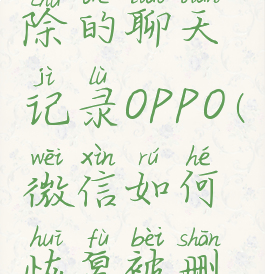 除的聊天
jì lù
记录OPPO(
wēi xìn rú hé
微信如何
huī fù bèi shān
恢复被删